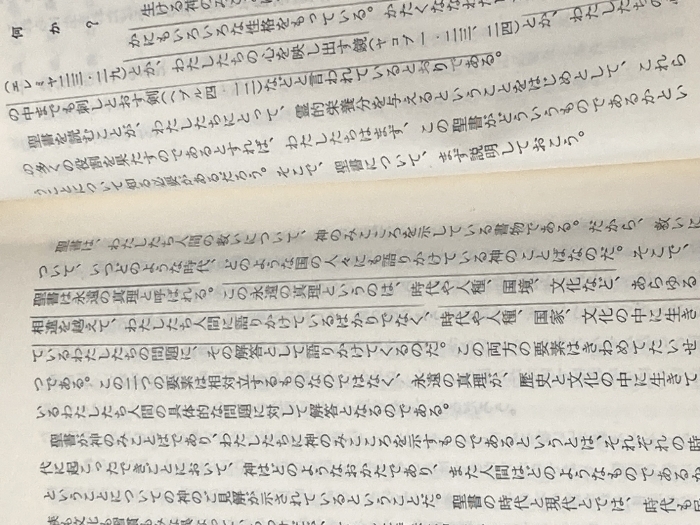 何か?
生ける神の
かにもいろいろな性格をもっている。かたくなな
(エレミヤ二三・二九)とか、わたしたちの心を映し出す鏡(ヤコブ一・二三、二四)とか、わたしたちの
の中までも刺しとおす剣(ヘブル四・一二)などと言われているとおりである。
聖書を読むことが、わたしたちにとって、霊的栄養分を与えるということをはじめとして、これら
の多くの役割を果たすのであるとすれば、わたしたちはまず、この聖書がどういうものであるかとい
うことについて知る必要があるだろう。そこで、聖書について、まず説明しておこう。
聖書は、わたしたち人間の救いについて、神のみこころを示している書物である。だから、救いに
ついて、いつどのような時代、どのような国の人々にも語りかけている神のことばなのだ。そこで、
聖書は永遠の真理と呼ばれる。この永遠の真理というのは、時代や人種、国境、文化など、あらゆる
相違を越えて、わたしたち人間に語りかけているばかりでなく、時代や人種、国家、文化の中に生き
ているわたしたちの問題に、その解答として語りかけてくるのだ。この両方の要素はきわめてたいせ
つである。この二つの要素は相対立するものなのではなく、永遠の真理が、歴史と文化の中に生きて
いるわたしたち人間の具体的な問題に対して解答となるのである。
聖書が神のみことばであり、わたしたちに神のみこころを示すものであるというとは、それぞれの時
代に起こったできごとにおいて、神はどのようなおかたであり、また人間はどのようなものであるか
ということについての神のご見解が示されているということだ。聖書の時代と現代とでは、時代も